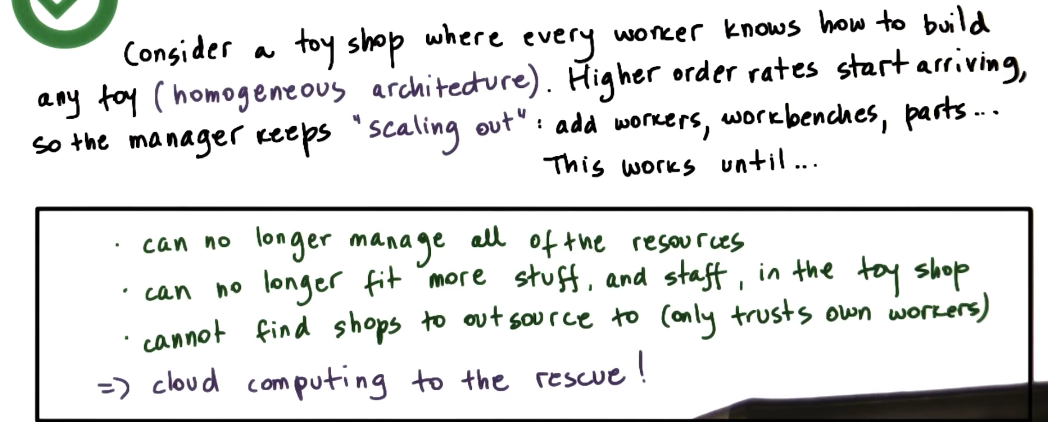 Consider a toy shop where every worker knows how to build
any toy (homogeneous architecture). Higher order rates start arriving,
so the manager keeps "scaling out": add workers, workbenches, parts...
This works until...
· can no longer manage all of the resources
· can no longer fit more stuff, and staff, in the toy shop
· cannot find shops to outsource to (only trusts own workers)
=> cloud computing to the rescue!